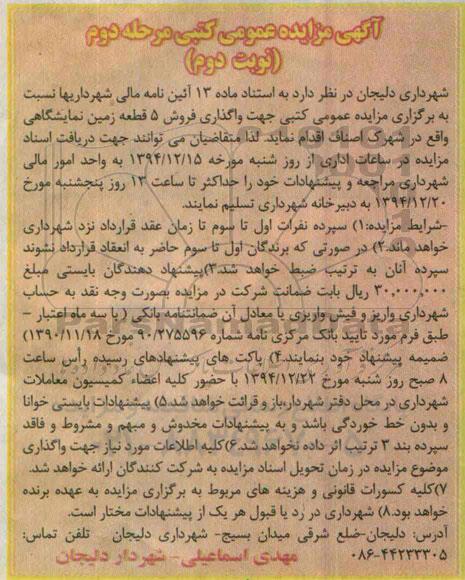 آگهی مزایده عمومی کتبی مرحله دوم
(نوبت دوم)
شهرداری دلیجان در نظر دارد به استناد ماده ۱۳ آئین نامه مالی شهرداریها نسبت
به برگزاری مزایده عمومی کتبی جهت واگذاری فروش ۵ قطعه زمین نمایشگاهی
واقع در شهرک اصناف اقدام نماید. لذا متقاضیان می توانند جهت دریافت اسناد
مزایده در ساعات اداری از روز شنبه مورخه ۱۳۹۴/۱۲/۱۵ به واحد امور مالی
شهرداری مراجعه و پیشنهادات خود را حداکثر تا ساعت ۱۳ روز پنجشنبه مورخ
۱۳۹۴/۱۲/۲۰ به دبیرخانه شهرداری تسلیم نمایند.
-شرایط مزایده:۱) سپرده نفرات اول تا سوم تا زمان عقد قرارداد نزد شهرداری
خواهد ماند.۲) در صورتی که برندگان اول تا سوم حاضر به انعقاد قرارداد نشوند
سپرده آنان به ترتیب ضبط خواهد شد.۳)پیشنهاد دهندگان بایستی مبلغ
۳۰,۰۰۰,۰۰۰ ریال بابت ضمانت شرکت در مزایده بصورت وجه نقد به حساب
شهرداری واریز و فیش واریزی یا معادل آن ضمانتنامه بانکی ( با سه ماه اعتبار –
طبق فرم مورد تایید بانک مرکزی نامه شماره ۹۰/۲۷۵۵۹۶ مورخ ۱۳۹۰/۱۱/۱۸)
ضمیمه پیشنهاد خود بنمایند.۴) پاکت های پیشنهادهای رسیده رأس ساعت
۸ صبح روز شنبه مورخ ۱۳۹۴/۱۲/۲۲ با حضور کلیه اعضاء کمیسیون معاملات
شهرداری در محل دفتر شهردار،باز و قرائت خواهد شد.۵) پیشنهادات بایستی خوانا
و بدون خط خوردگی باشد و به پیشنهادات مخدوش و مبهم و مشروط و فاقد
سپرده بند ۳ ترتیب اثر داده نخواهد شد.۶)کلیه اطلاعات مورد نیاز جهت واگذاری
موضوع مزایده در زمان تحویل اسناد مزایده به شرکت کنندگان ارائه خواهد شد.
۷)کلیه کسورات قانونی و هزینه های مربوط به برگزاری مزایده به عهده برنده
خواهد بود.۸) شهرداری در رد یا قبول هر یک از پیشنهادات مختار است.
آدرس: دلیجان-ضلع شرقی میدان بسیج- شهرداری دلیجان تلفن تماس:
۰۸۶-۴۴۲۳۳۳۰۵ مهدی اسماعیلی- شهردار دلیجان